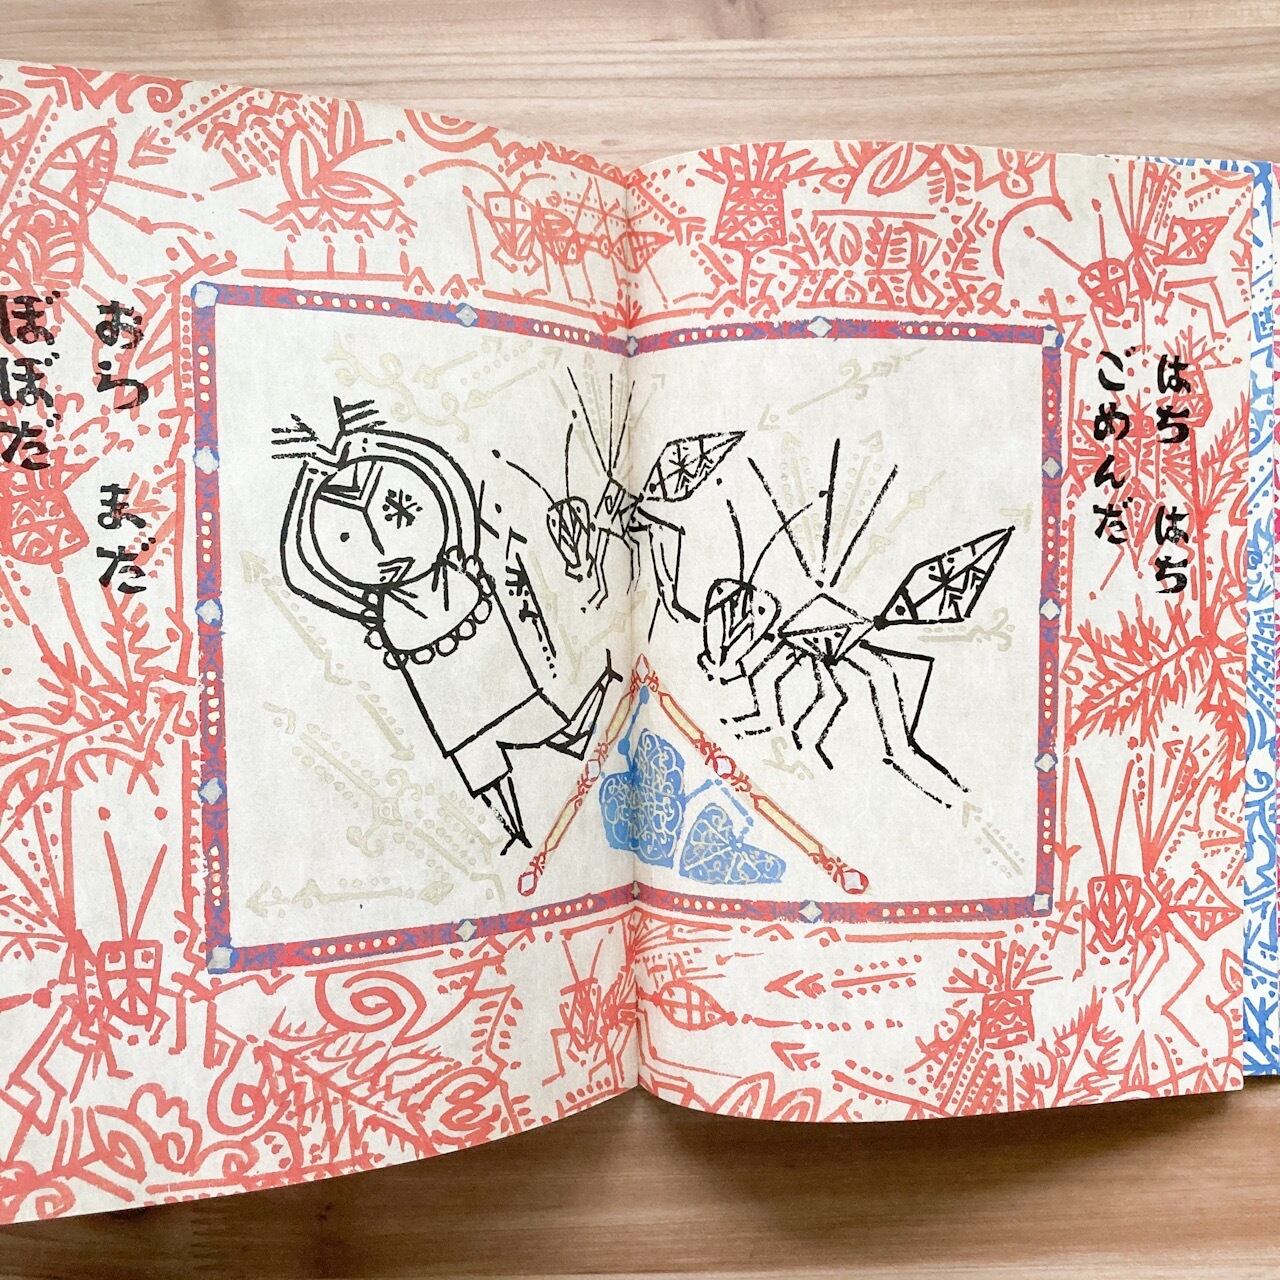 はち はち
ごめんだ
おら まだ
ぼぼだ